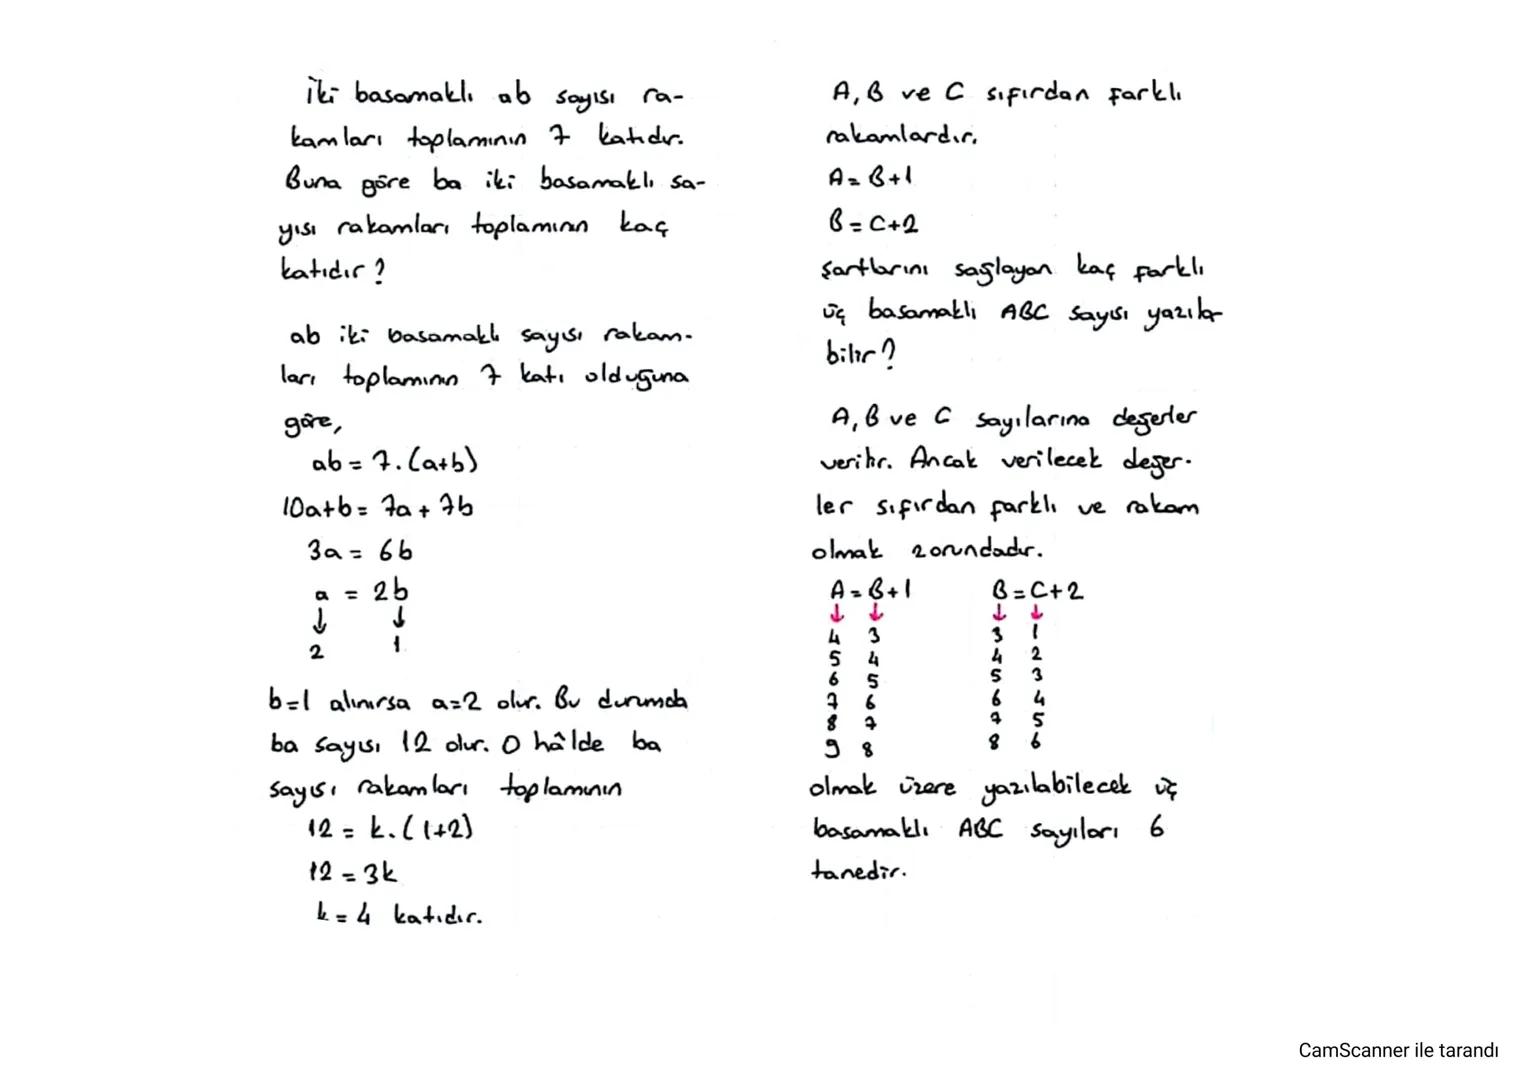 İki basamaklı ab sayısı ra-
kamları toplamının 7 katıdır.
Buna göre ba iki basamaklı sa-
yısı rakamları toplamının kaç
katıdır?
ab iki basamaklı sayısı rakam-
ları toplamının 7 katı olduğuna
göre,
ab = 7.(a+b)
10a+b = 7a + 7b
3a = 6b
a = 2b
↓ ↓
2 1
b=1 alınırsa a=2 olur. Bu durumda
ba sayısı 12 olur. O hâlde ba
sayısı rakamları toplamının
12 = k.(1+2)
12 = 3k
k = 4 katıdır.
A, B ve C sıfırdan farklı
rakamlardır.
A = B+1
B = C+2
şartlarını sağlayan kaç farklı
üç basamaklı ABC sayısı yazıla-
bilir?
A, B ve C sayılarına değerler
verilir. Ancak verilecek değer-
ler sıfırdan farklı ve rakam
olmak zorundadır.
A = B+1 B = C+2
↓ ↓ ↓ ↓
4 3 3 1
5 4 4 2
6 5 5 3
7 6 6 4
8 7 7 5
9 8 8 6
olmak üzere yazılabilecek üç
basamaklı ABC sayıları 6
tanedir.
CamScanner ile tarandı